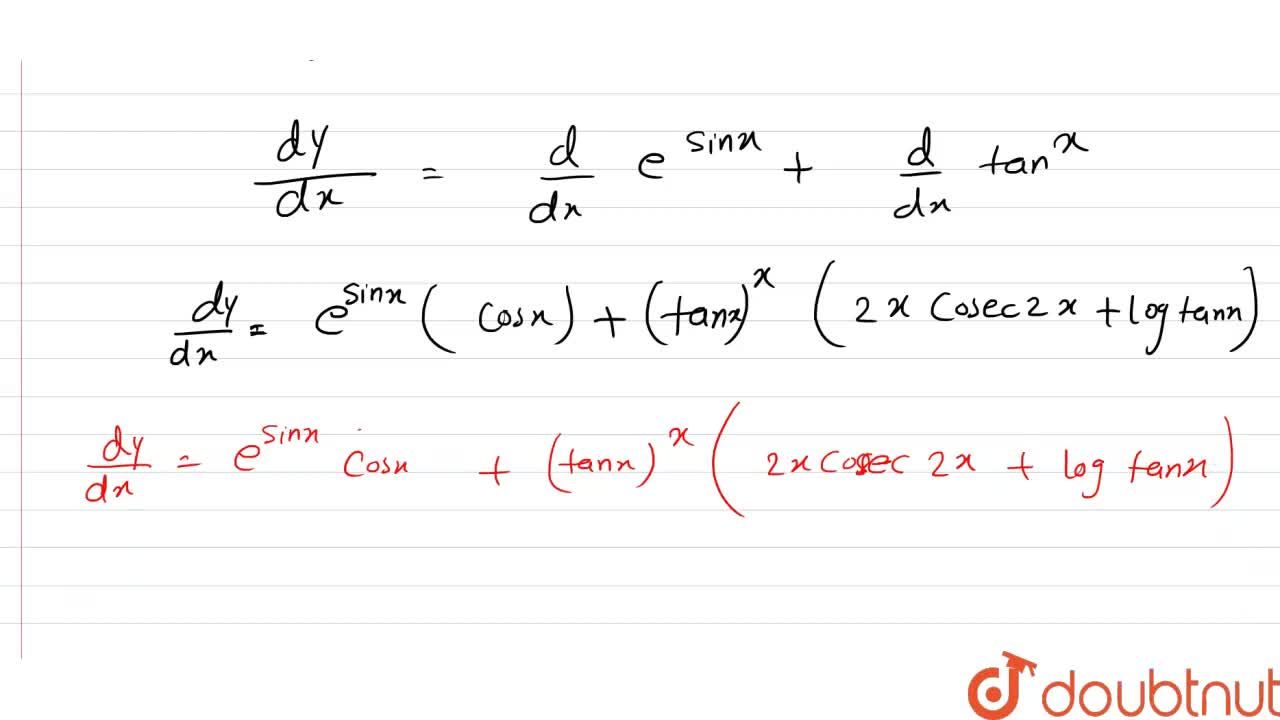 dy/dx = d/dx e^sinx + d/dx tan^x
dy/dx = e^sinx ( cosx) + (tanx)^x ( 2x Cosec2x + log tanx)
dy/dx = e^sinx cosx + (tanx)^x ( 2x Cosec 2x + log tanx)
doubtnut